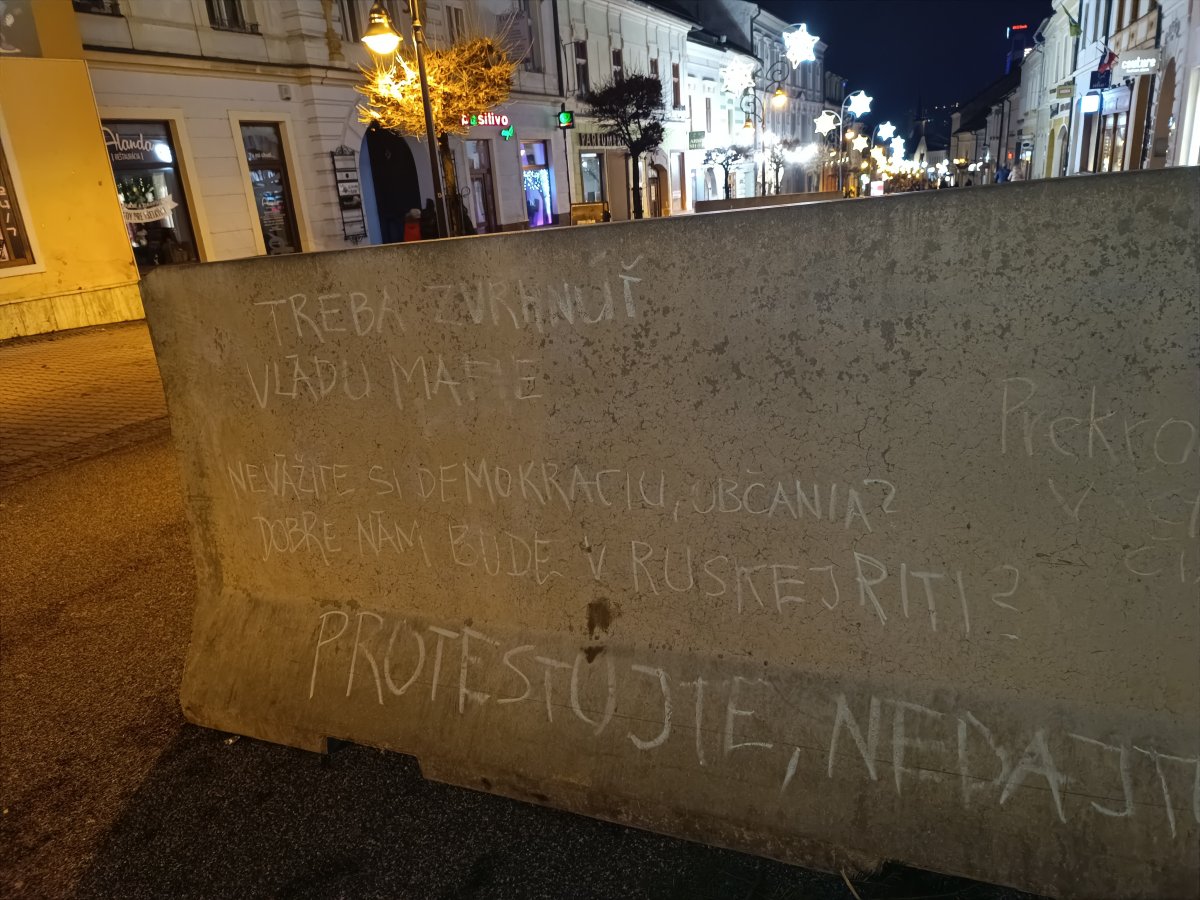 Alanda
REŠTAURÁCIA
pasilivo
couture
TREBA ZVRHNÚŤ
VLÁDU MAFIE
NEVÁŽITE SI DEMOKRACIU, OBČANIA?
DOBRE NÁM BUDE V RUSKEJ RITI?
PROTESTUJTE, NEDAJT
Prekro